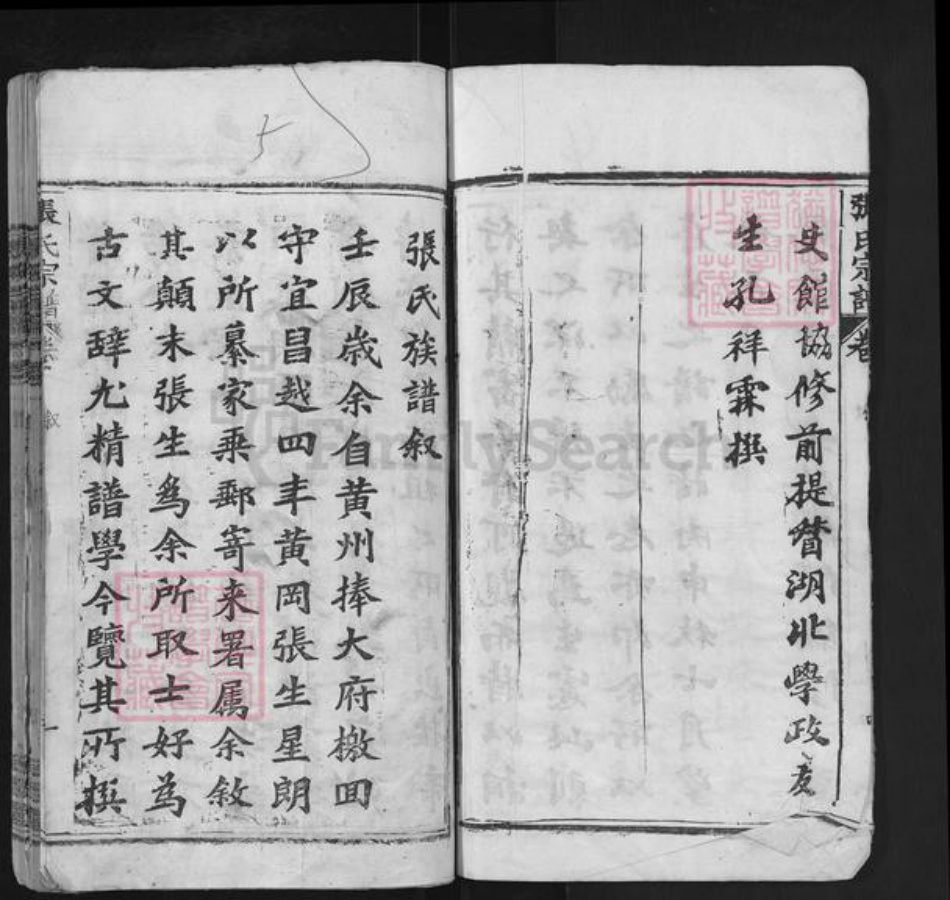 史館協修前提督湖北學政友
生孔祥霖撰
張氏族譜叙
壬辰歲余自黃州捧大府檄回
守宜昌越四年黃岡張生星朗
以所纂家乘郵寄来署属余敘
其顛末張生為余所取士好為
古文辭尤精譜學今覽其所撰
張氏宗譜
卷
張氏宗譜
叙
FamilySearch